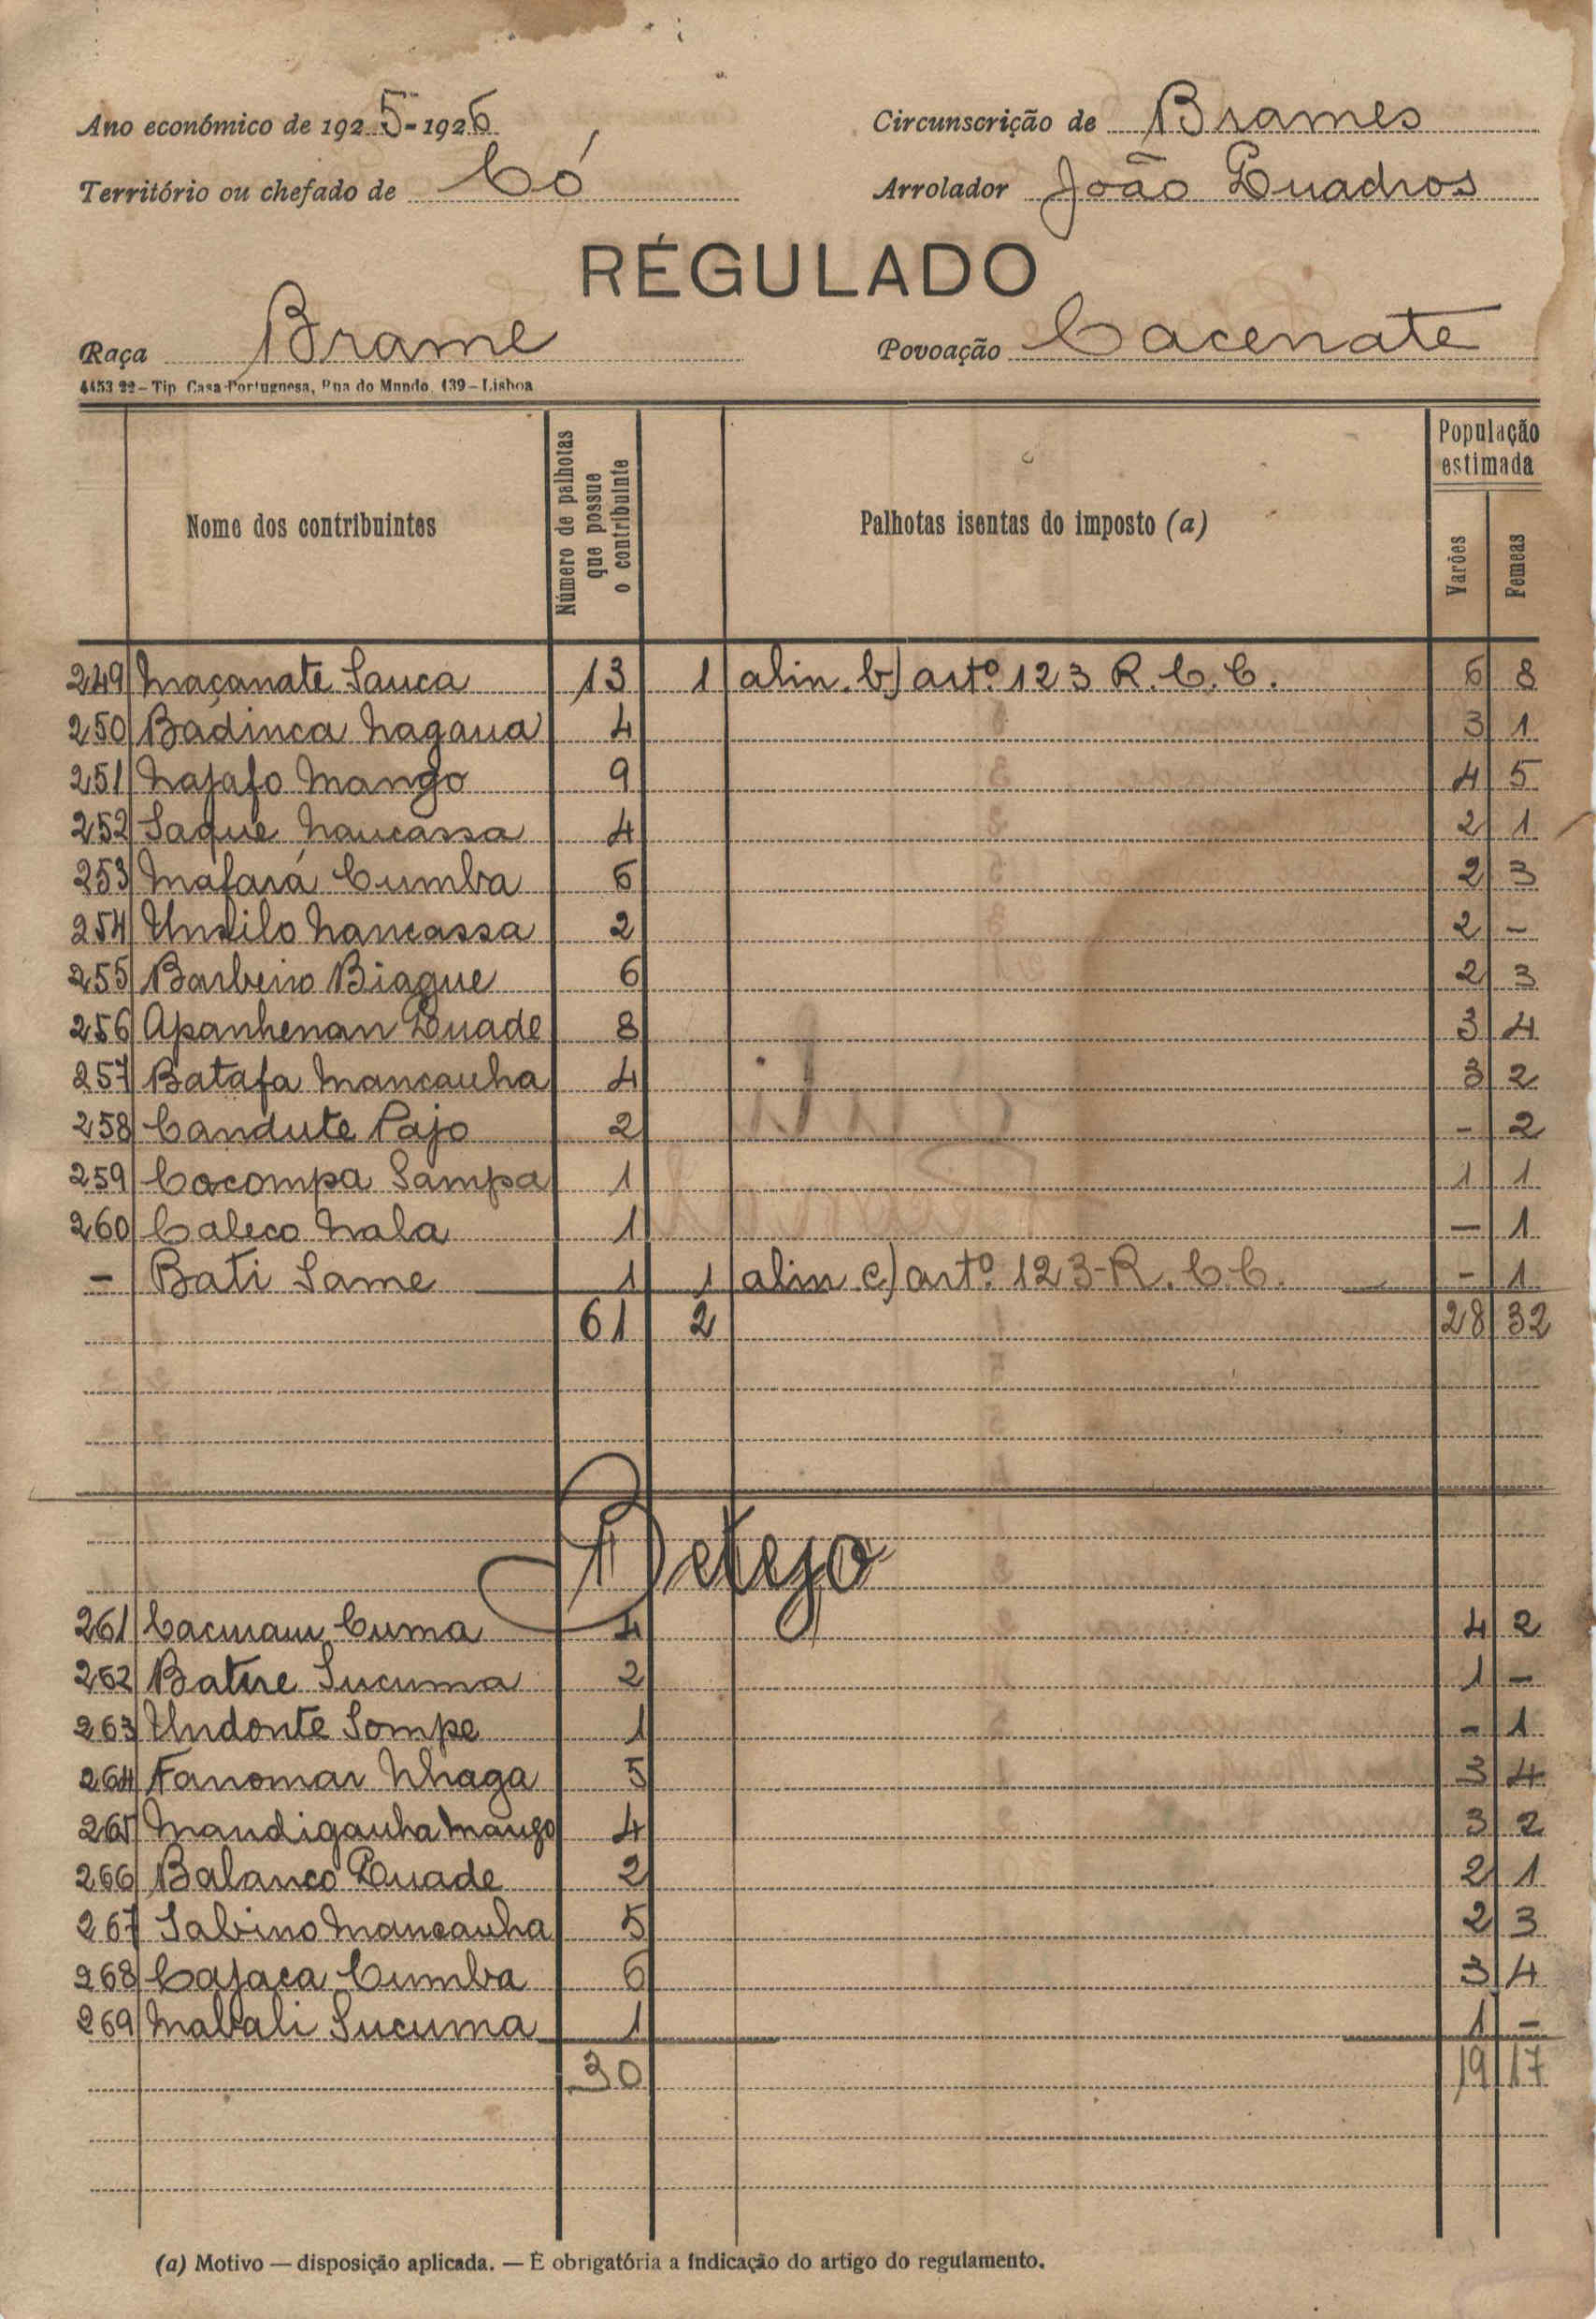 Ano económico de 1925-1926 Circunscrição de Brames
Território ou chefado de Có Arrolador João Quadros
RÉGULADO
Raça Brame Povoação Cacenate
4453 22 – Tip. Casa Portuguesa, Rua do Mundo, 139 – Lisboa
Nome dos contribuintes Número de palhotas que possue o contribuinte Palhotas isentas do imposto (a) População estimada Varões Femeas
249 Maçanate Sauca 13 1 alin. b) artº 123 R. C. C. 6 8
250 Badinca Nagaua 4 3 1
251 Najafo Mango 9 4 5
252 Saque Naucassa 4 2 1
253 Mafará Cumba 6 2 3
254 Undilo Nancassa 2 2 -
255 Barbeiro Biague 6 2 3
256 Apanhenan Quade 8 3 4
257 Batafa Mancauha 4 3 2
258 Candute Pajo 2 - 2
259 Cocompa Sampa 1 1 1
260 Caleco Nala 1 - 1
- Bati Same 1 1 alin c) artº 123-R. C. C. - 1
61 2 28 32
Betejo
261 Cuma 4 4 2
262 Batire Sucuma 2 1 -
263 Undonte Sompe 1 - 1
264 Fanomar Nhaga 5 3 4
265 Mandigauha Mango 4 3 2
266 Balanco Quade 2 2 1
267 Sabino Mancauha 5 2 3
268 Cajaca Cumba 6 3 4
269 Mabali Sucuma 1 1 -
30 19 17
(a) Motivo — disposição aplicada. — É obrigatória a indicação do artigo do regulamento.